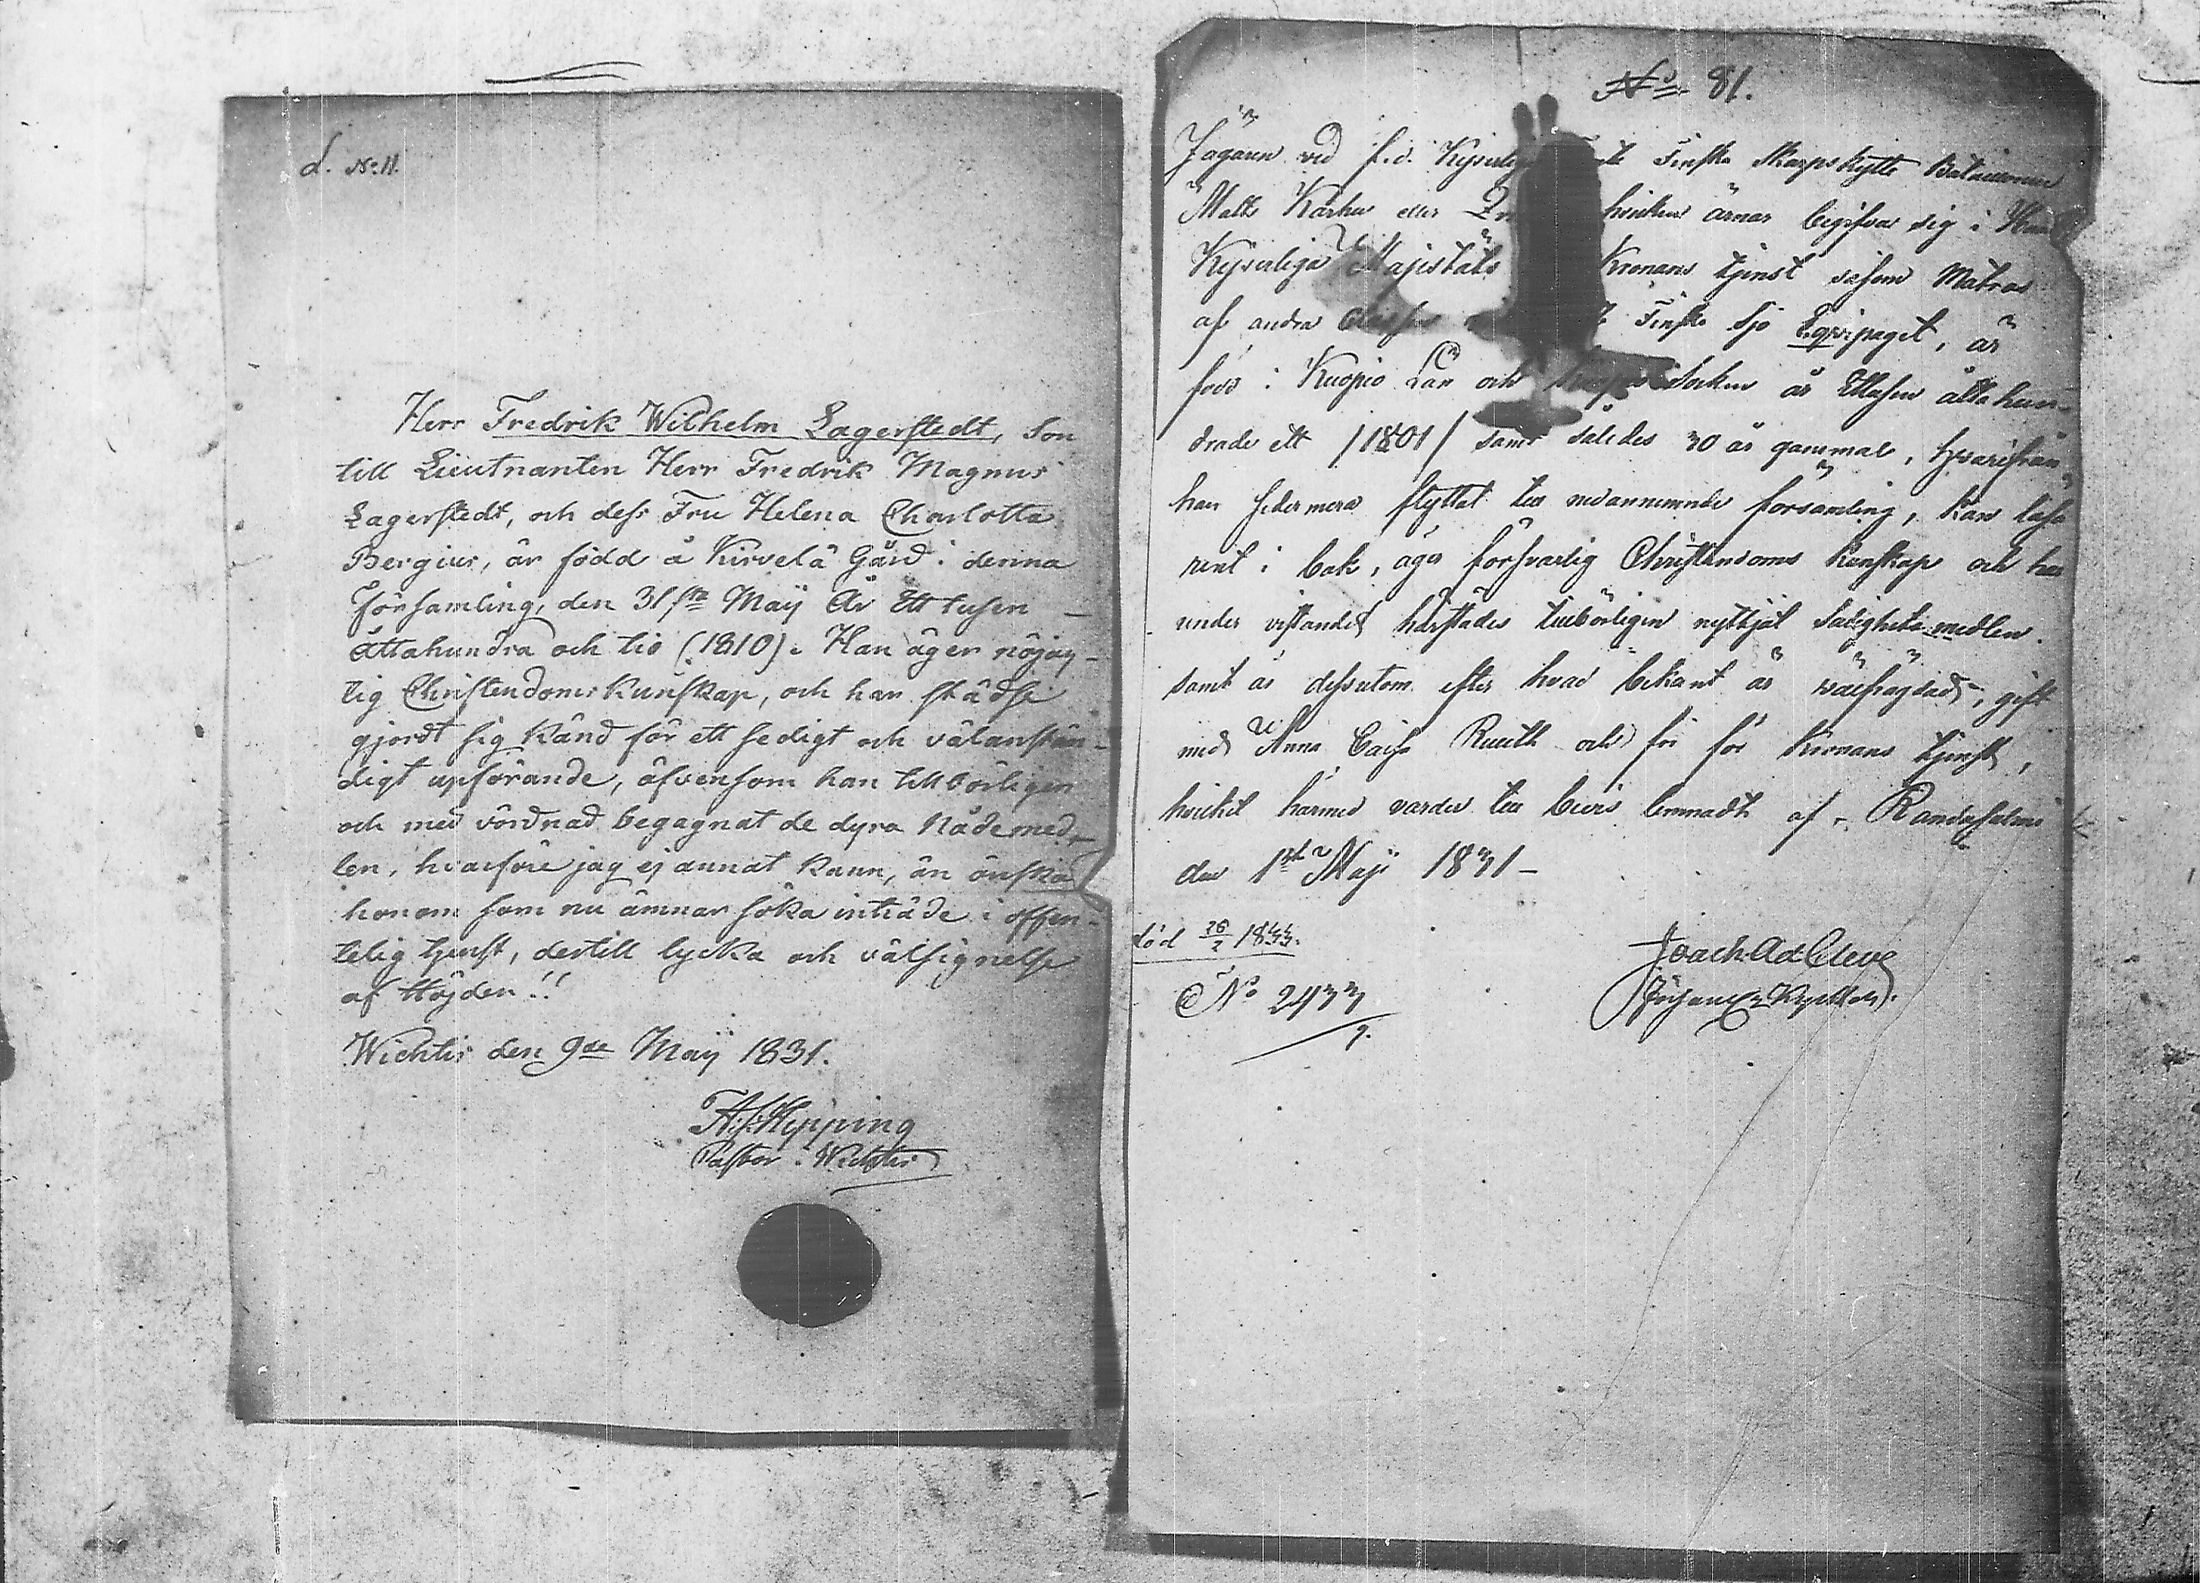 d. No 11.
Herr Fredrik Wilhelm Lagerstedt, Son
till Lieutnanten Herr Fredrik Magnus
Lagerstedt, och dess Fru Helena Charlotta
Bergius, är född å Kirvelä Gård i denna
Församling, den 31sta Maÿ År Ett tusen
Åttahundra och tio (1810). Han äger nöjag-
tig Christendoms Kunskap, och har städse
gjordt sig Känd för ett sedigt och välanstän-
digt upförande, äfvensom han tillbörligen
och med vördnad begagnat de dyra Nådemed-
len, hvarföre jag ej annat kann, än önska
honom som nu ämnar söka inträde i offen-
telig tjenst, dertill lycka och välsignelse
af Höjden!!
Wichtis den 9de Maÿ 1831.
Hipping
Pastor i Wichtis
No 81.
Jägaren vid f.d. Kejserliga Finska Skarpskytte Bataillonen
Matts Karhu eller hvilken ärnar begifva sig i
Kejserliga Majestäts Kronans tjenst såsom Matros
af andra Classen Finska Sjö Eqvipaget, är
född i Kuopio Län och Socken år Ettusen åtta hun-
drade ett /1801/ samt således 30 år gammal, hvarifrån
han sedermera flyttat till nedannemnde församling, kan läsa
rent i bok, äger försvarlig Christendoms kunskap och har
under vistandet härstädes tillbörligen nyttjat Salighets medlen.
samt är dessutom efter hvad bekant är välfrägdad, gift
med Anna Caisa Ruuth och fri för Kronans tjenst,
hvilket härmed varder till bevis lemnadt af Randasalmi
den 1st Maji 1831 –
död 26/2 1833.
No 2433
Joach. Ad. Cleve